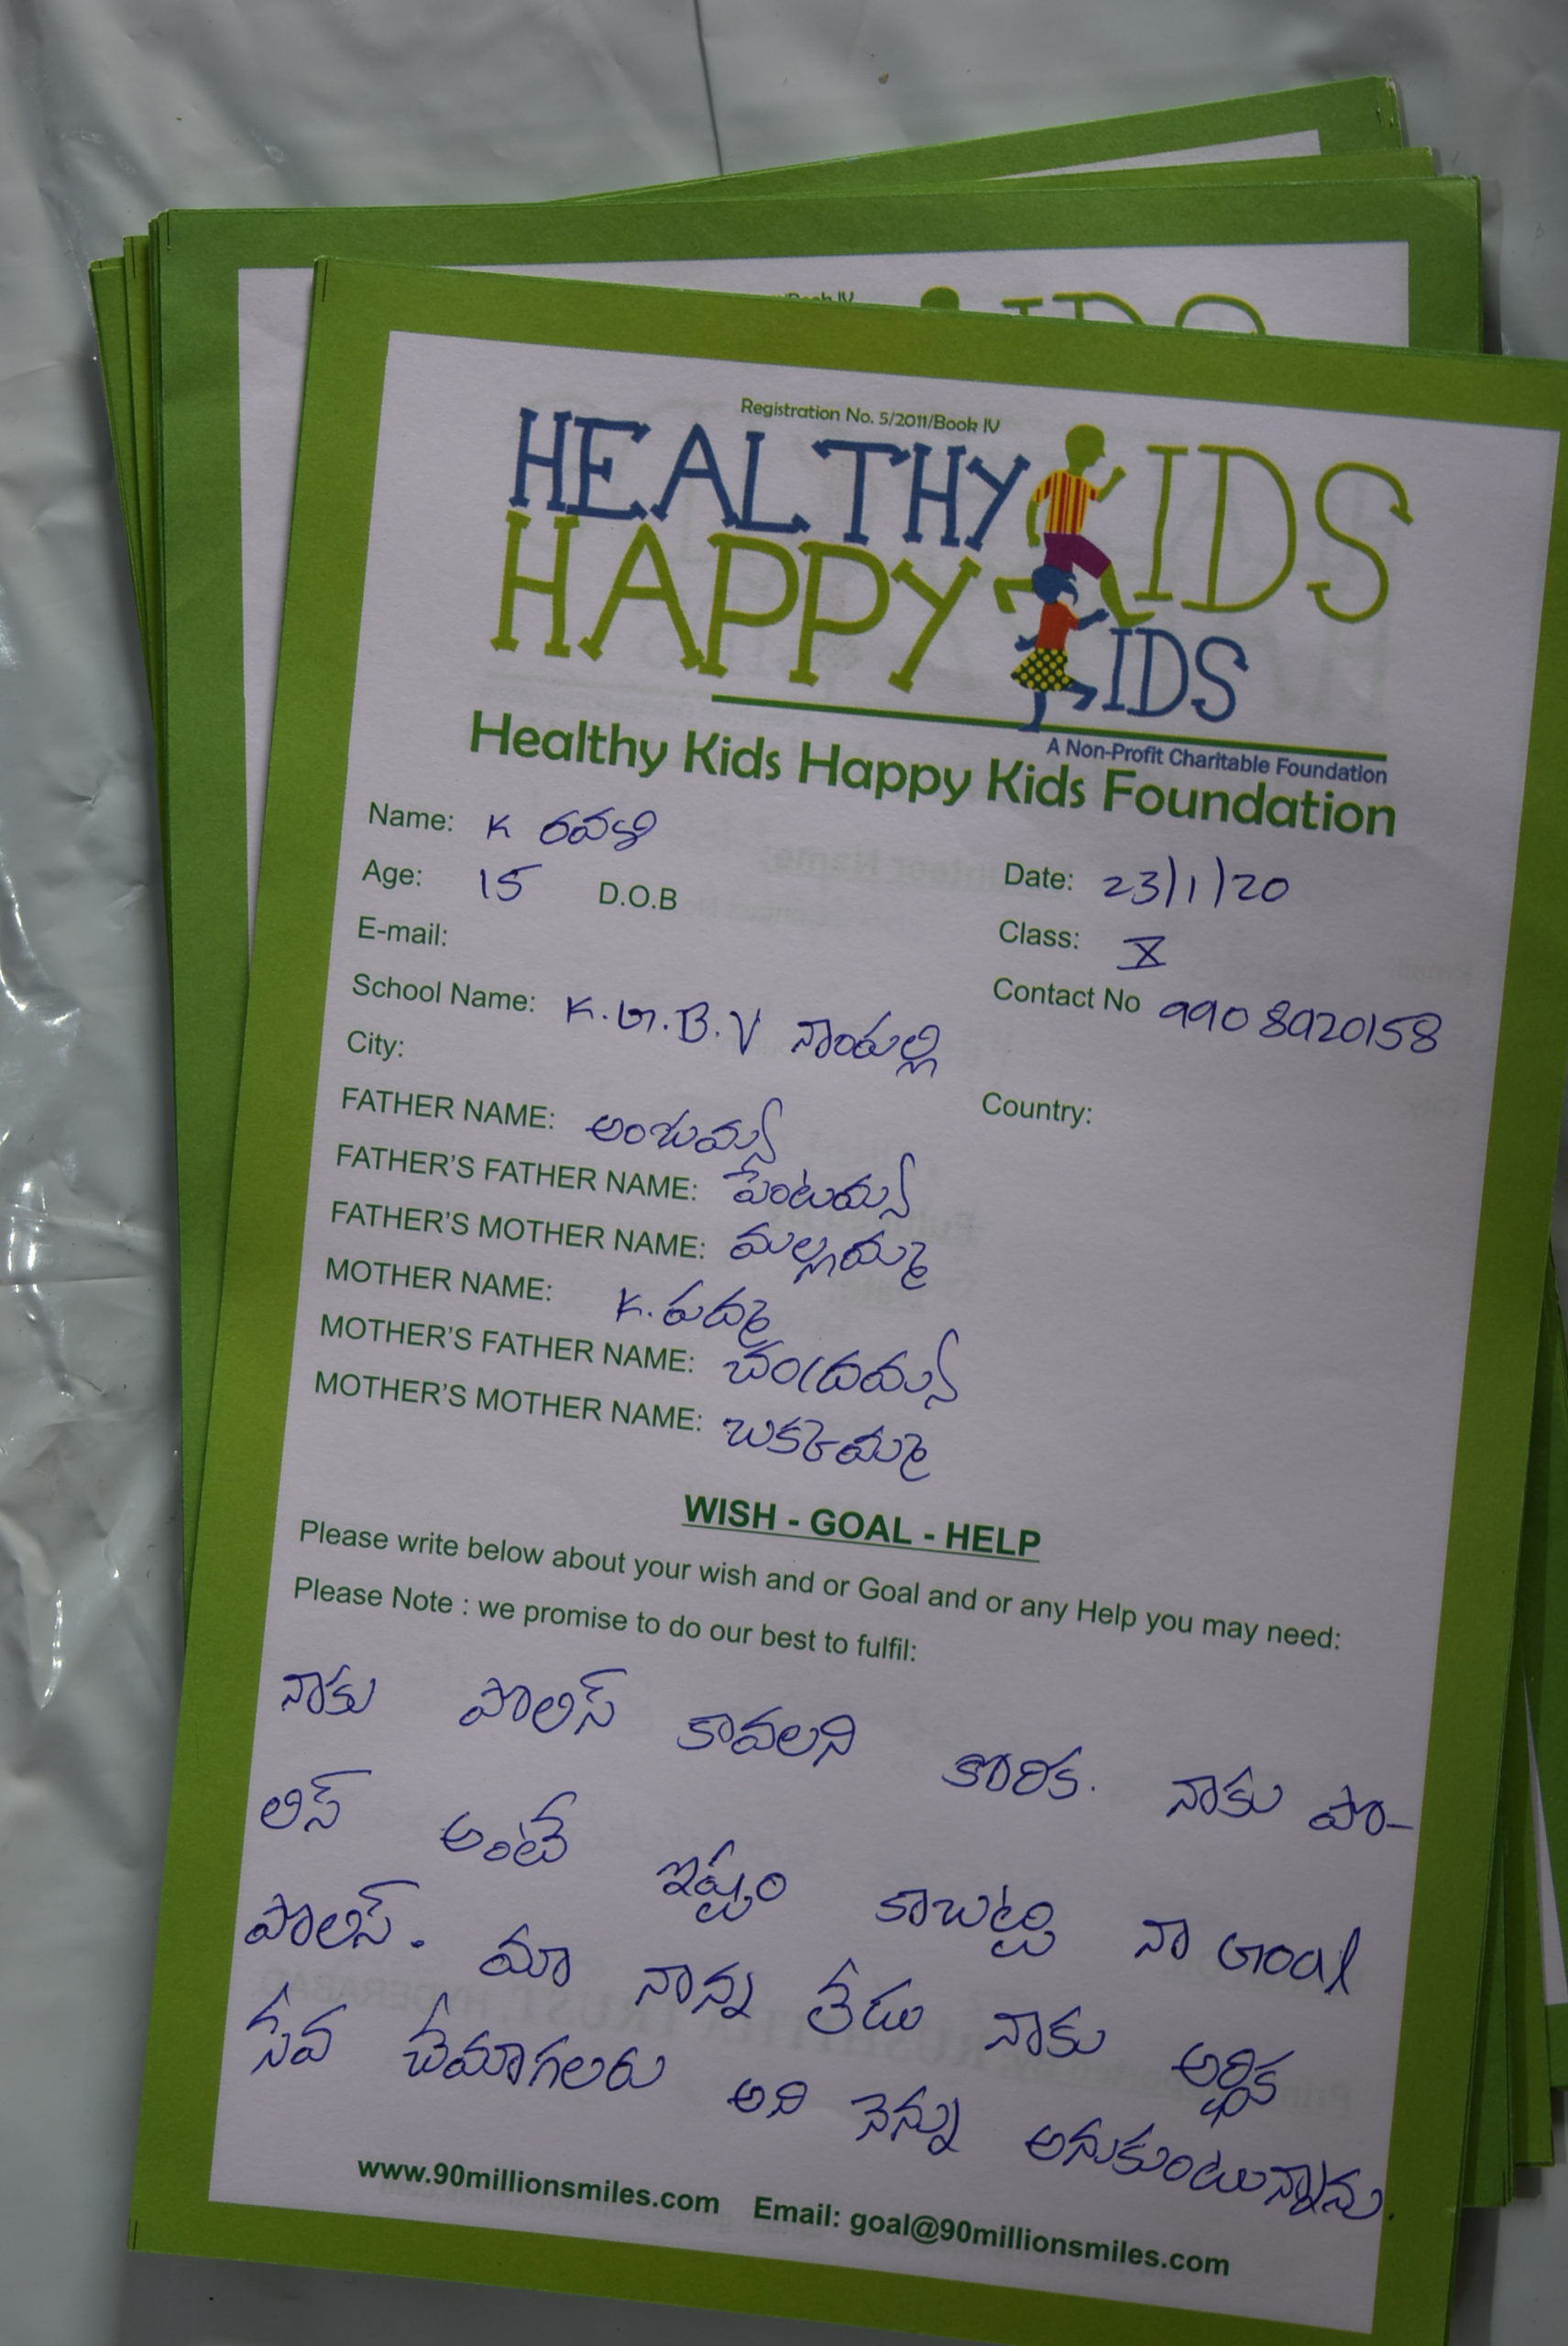 Registration No. 5/2011/Book IV
HEALTHY KIDS
HAPPY KIDS
A Non-Profit Charitable Foundation
Healthy Kids Happy Kids Foundation
Name: K రవళి
Date: 23/1/20
Age: 15 D.O.B
Class: X
E-mail:
Contact No 9908920158
School Name: K.G.B.V నాంపల్లి
City:
Country:
FATHER NAME: అంజయ్య
FATHER'S FATHER NAME: పెంటయ్య
FATHER'S MOTHER NAME: మల్లమ్మ
MOTHER NAME: K. పద్మ
MOTHER'S FATHER NAME: చంద్రయ్య
MOTHER'S MOTHER NAME: బుక్కమ్మ
WISH - GOAL - HELP
Please write below about your wish and or Goal and or any Help you may need:
Please Note : we promise to do our best to fulfil:
నాకు పొలిస్ కావలని కొరిక. నాకు పొ-
లిస్ అంటే ఇష్టం కాబట్టి నా Goal
పొలిస్. మా నాన్న లేడు నాకు అర్థిక
సేవ చేమాగలరు అని నెన్ను అనుకుంటున్నాను.
www.90millionsmiles.com Email: goal@90millionsmiles.com